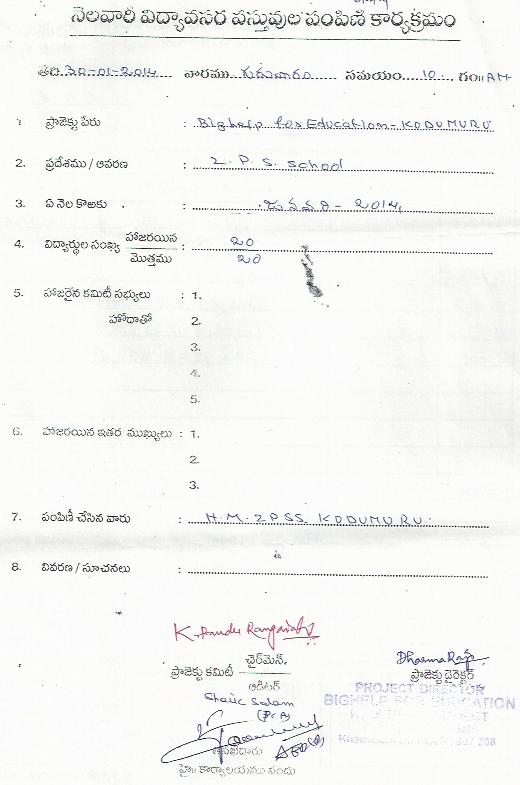 నెలవారీ విద్యావసర వస్తువుల పంపిణి కార్యక్రమం
తేది 30-01-2014 వారము గురువారం సమయం 10 గం॥ AM
1. ప్రాజెక్టు పేరు : Bighelp for Education - KODUMURU
2. ప్రదేశము / ఆవరణ : Z. P. S. School
3. ఏ నెల కొఱకు : జనవరి - 2014
4. విద్యార్థుల సంఖ్య హాజరయిన : 20
మొత్తము 20
5. హాజరైన కమిటీ సభ్యులు : 1.
హోదాతో 2.
3.
4.
5.
6. హాజరయిన ఇతర ముఖ్యులు : 1.
2.
3.
7. పంపిణీ చేసిన వారు : H.M. ZPSS. KODUMURU
8. వివరణ / సూచనలు :
K. Pandu Rangaiah
ప్రాజెక్టు కమిటీ చైర్‌మెన్
ఆడిటర్
DharmaRaju
ప్రాజెక్టు డైరెక్టర్
PROJECT DIRECTOR
BIGHELP FOR EDUCATION
507 208
Shaik Salam
(PCA)
హై॥ కార్యాలయము నందు